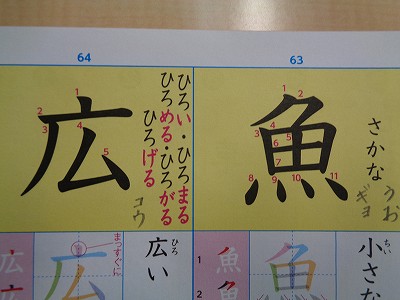 63
魚
1
2
3
4
5
6
7
8
9
10
11
さかな
うお
ギョ
小さな
ちい
魚
1
魚
2
魚
64
広
1
2
3
4
5
ひろい・ひろまる
ひろめる・ひろがる
ひろげる
コウ
広い
ひろ
まっすぐに
広
広
広